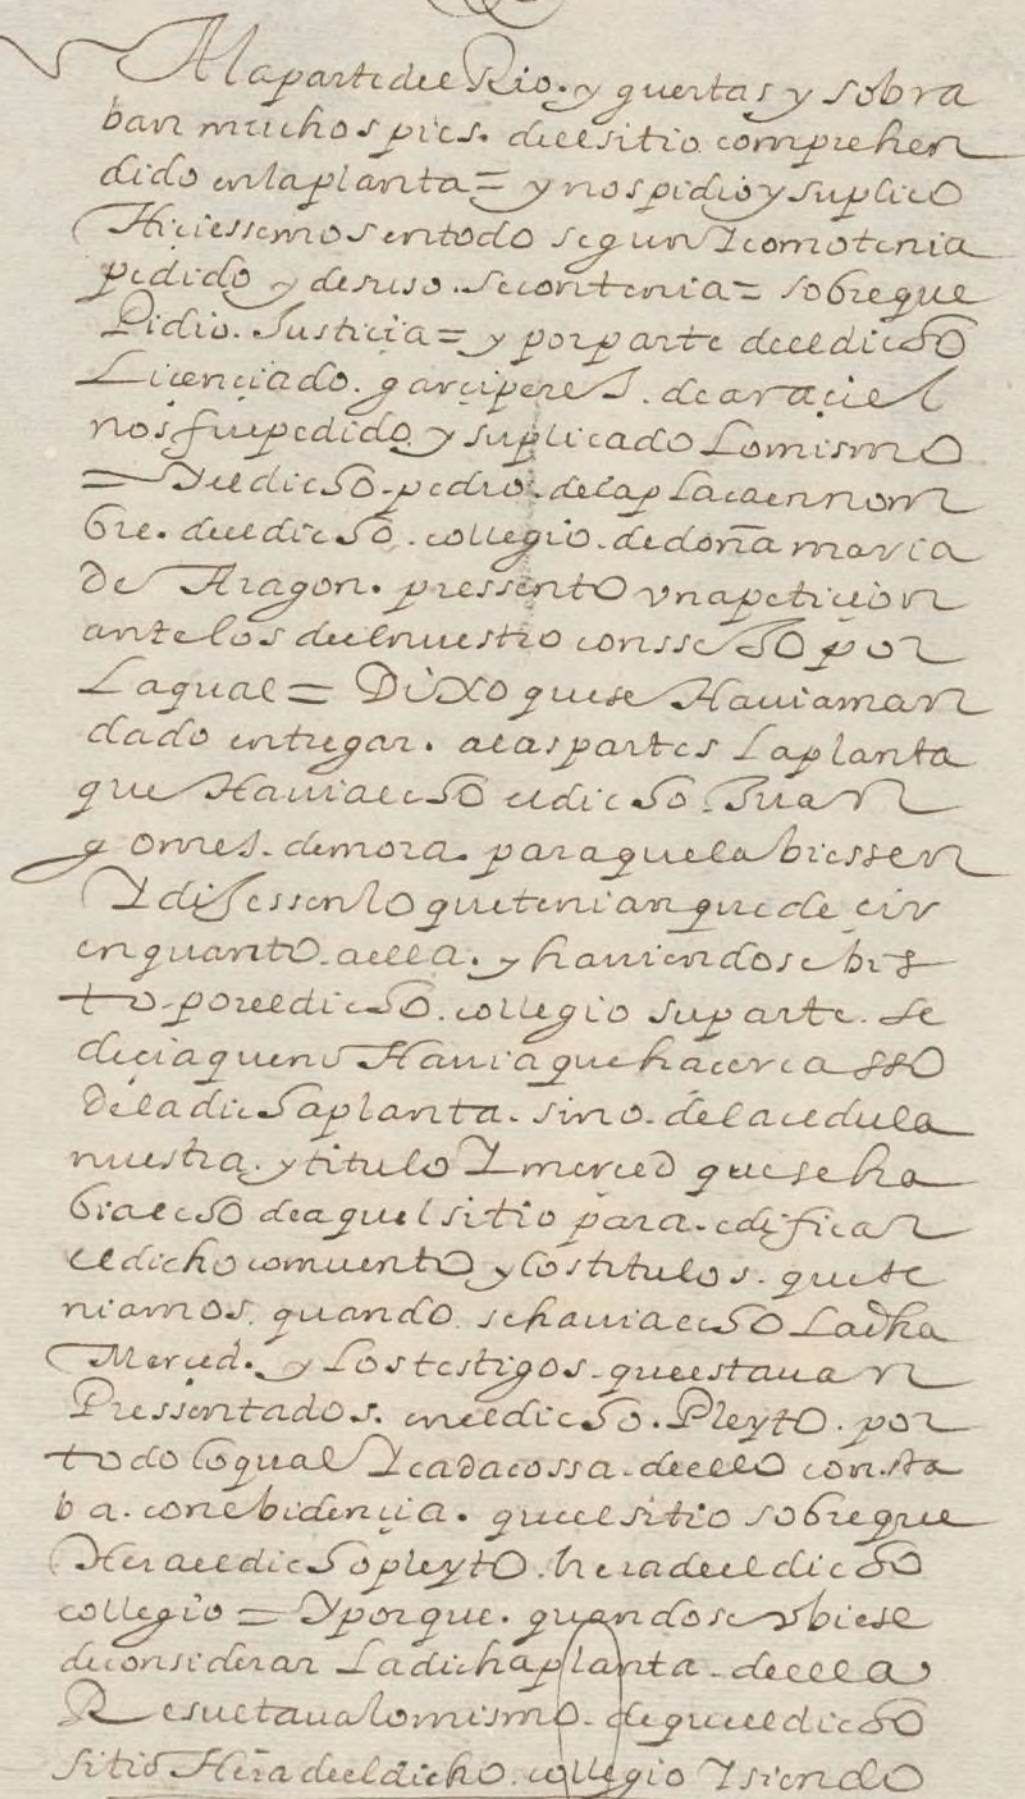 A la parte de el Rio. y guertas y sobra
ban muchos pies. de el sitio comprehen
dido en la planta = y nos pidio y suplico
Hiçiessemos en todo segun Y como tenia
pedido y de suso. se contenia = sobre que
Pidio. Justiçia = y por parte de el dicho
Liçençiado. garçi peres. de araçiel
nos fue pedido y suplicado Lo mismo
= Y el dicho. pedro. de la placa en nom
bre. de el dicho. collegio. de doña maria
de Aragon. pressento vna petiçion
ante los de el nuestro conssejo por
La qual = Dixo que se Hauia man
dado entregar. a las partes La planta
que Hauia echo el dicho. Juan
gomes. de mora. para que la biessen
Y dijessen lo que tenian que deçir
en quanto. a ella. y hauiendose bis
to por el dicho. collegio su parte. se
deçia que no Hauia que hacer casso
De la dicha planta. sino. de la cedula
nuestra. y titulo Y merced que se ha
bia echo de aquel sitio para. edificar
el dicho comuento y los titulos. que te
niamos. quando. se hauia echo La dha
Merced. y Los testigos. que estauan
Pressentados. en el dicho. Pleyto. por
todo lo qual Y cada cossa. de ello consta
ba. con ebidençia. que el sitio sobre que
Hera el dicho pleyto. hera de el dicho
collegio = Y porque. quando se vbiese
de considerar La dicha planta. de ella
Resultaua lo mismo. de que el dicho
sitio Hera de el dicho. collegio Y siendo